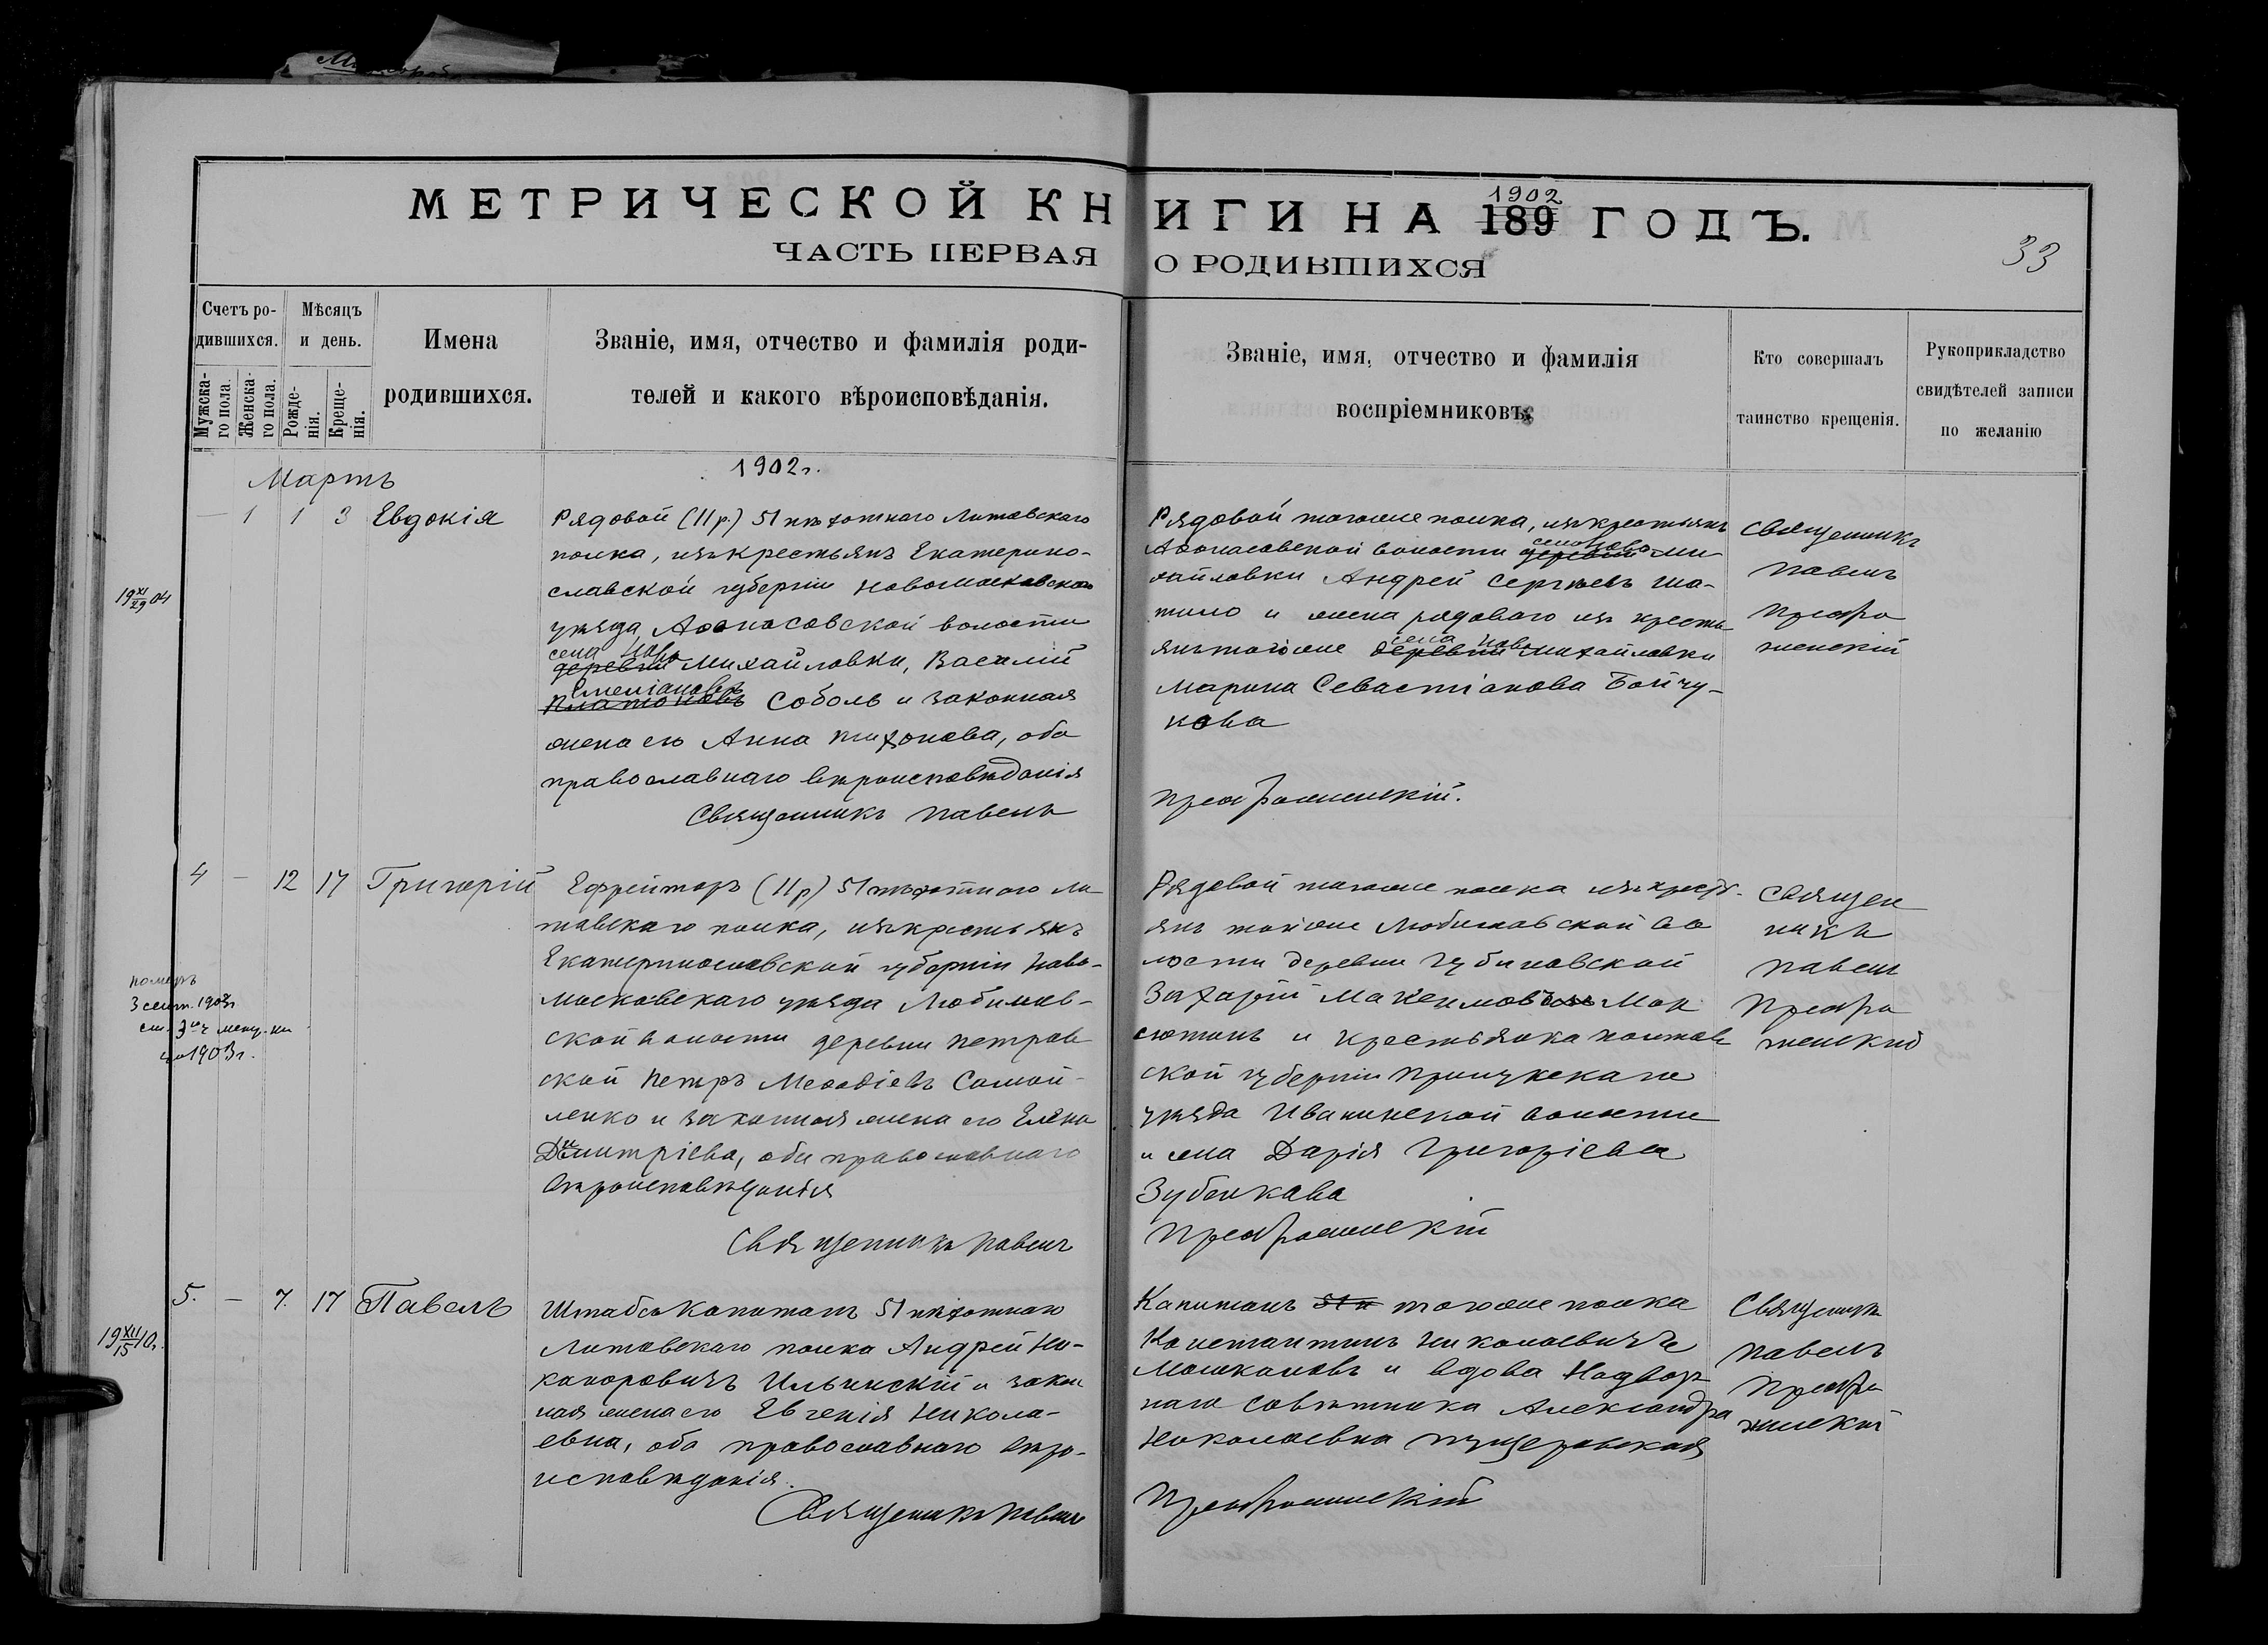 МЕТРИЧЕСКОЙ КНИГИ НА 189 1902 ГОДЪ.
ЧАСТЬ ПЕРВАЯ О РОДИВШИХСЯ
33
Счетъ ро-
дившихся.
Мужска-
го пола.
Женска-
го пола.
Мѣсяцъ
и день.
Рожде-
нія.
Креще-
нія.
Имена
родившихся.
Званіе, имя, отчество и фамилія роди-
телей и какого вѣроисповѣданія.
Званіе, имя, отчество и фамилія
воспріемниковъ.
Кто совершалъ
таинство крещенія.
Рукоприкладство
свидѣтелей записи
по желанію
Мартъ
1902г.
— 1 1 3 Евдокія
19 XI/29 04
Рядовой (11 р.) 51 пѣхотнаго Литовскаго
полка, изъ крестьянъ Екатерино-
славской губерніи Новомосковскаго
уѣзда, Аѳонасовской волости
села Ново
деревни Михайловки, Василій
Емеліановъ
Платоновъ Соболь и законная
жена его Анна Тихонова, оба
православнаго вѣроисповѣданія
Священникъ Павелъ
Рядовой тогоже полка, изъ крестьянъ
Аѳонасовской волости деревни села Ново Ми
хайловки Андрей Сергѣевъ Ша-
тило и жена рядового изъ кресть
янъ тогоже деревни села Ново Михайловки
Марина Севастіанова Бойчу-
кова
Преображенскій.
Священникъ
Павелъ
Преобра
женскій
4 — 12 17 Григорій
померъ
3 сент. 1903г
за 1903г.
Ефрейторъ (11 р) 51 пѣхотнаго Ли
товскаго полка, изъ крестьянъ
Екатеринославской губерніи Ново-
московскаго уѣзда Любимов-
ской волости деревни Петров
ской Петръ Меѳодіевъ Самой-
ленко и законная жена его Елена
Димитріева, оба православнаго
вѣроисповѣданія
Священникъ Павелъ
Рядовой тогоже полка изъ кресть-
янъ тойже Любимовской во
лости деревни Губиновской
Захарій Максимовъ Мак
сютинъ и крестьянка Полтав
ской губерніи Прилукскаго
уѣзда Иваницской волости
и села Дарія Григоріева
Зубенкова
Преображенскій
Священ
никъ
Павелъ
Преобра
женскій
5. — 7. 17 Павелъ
19 XII/15 10г.
Штабсъ Капитанъ 51 пѣхотнаго
Литовскаго полка Андрей Ни-
каноровичъ Ильинскій и закон
ная жена его Евгенія Никола-
евна, оба православнаго вѣро-
исповѣданія.
Священникъ Павелъ
Капитанъ 51 п тогоже полка
Константинъ Николаевичъ
Машкановъ и вдова Надвор
наго Совѣтника Александра
Николаевна Пущеровская
Преображенскій
Священникъ
Павелъ
Преобра
женскій